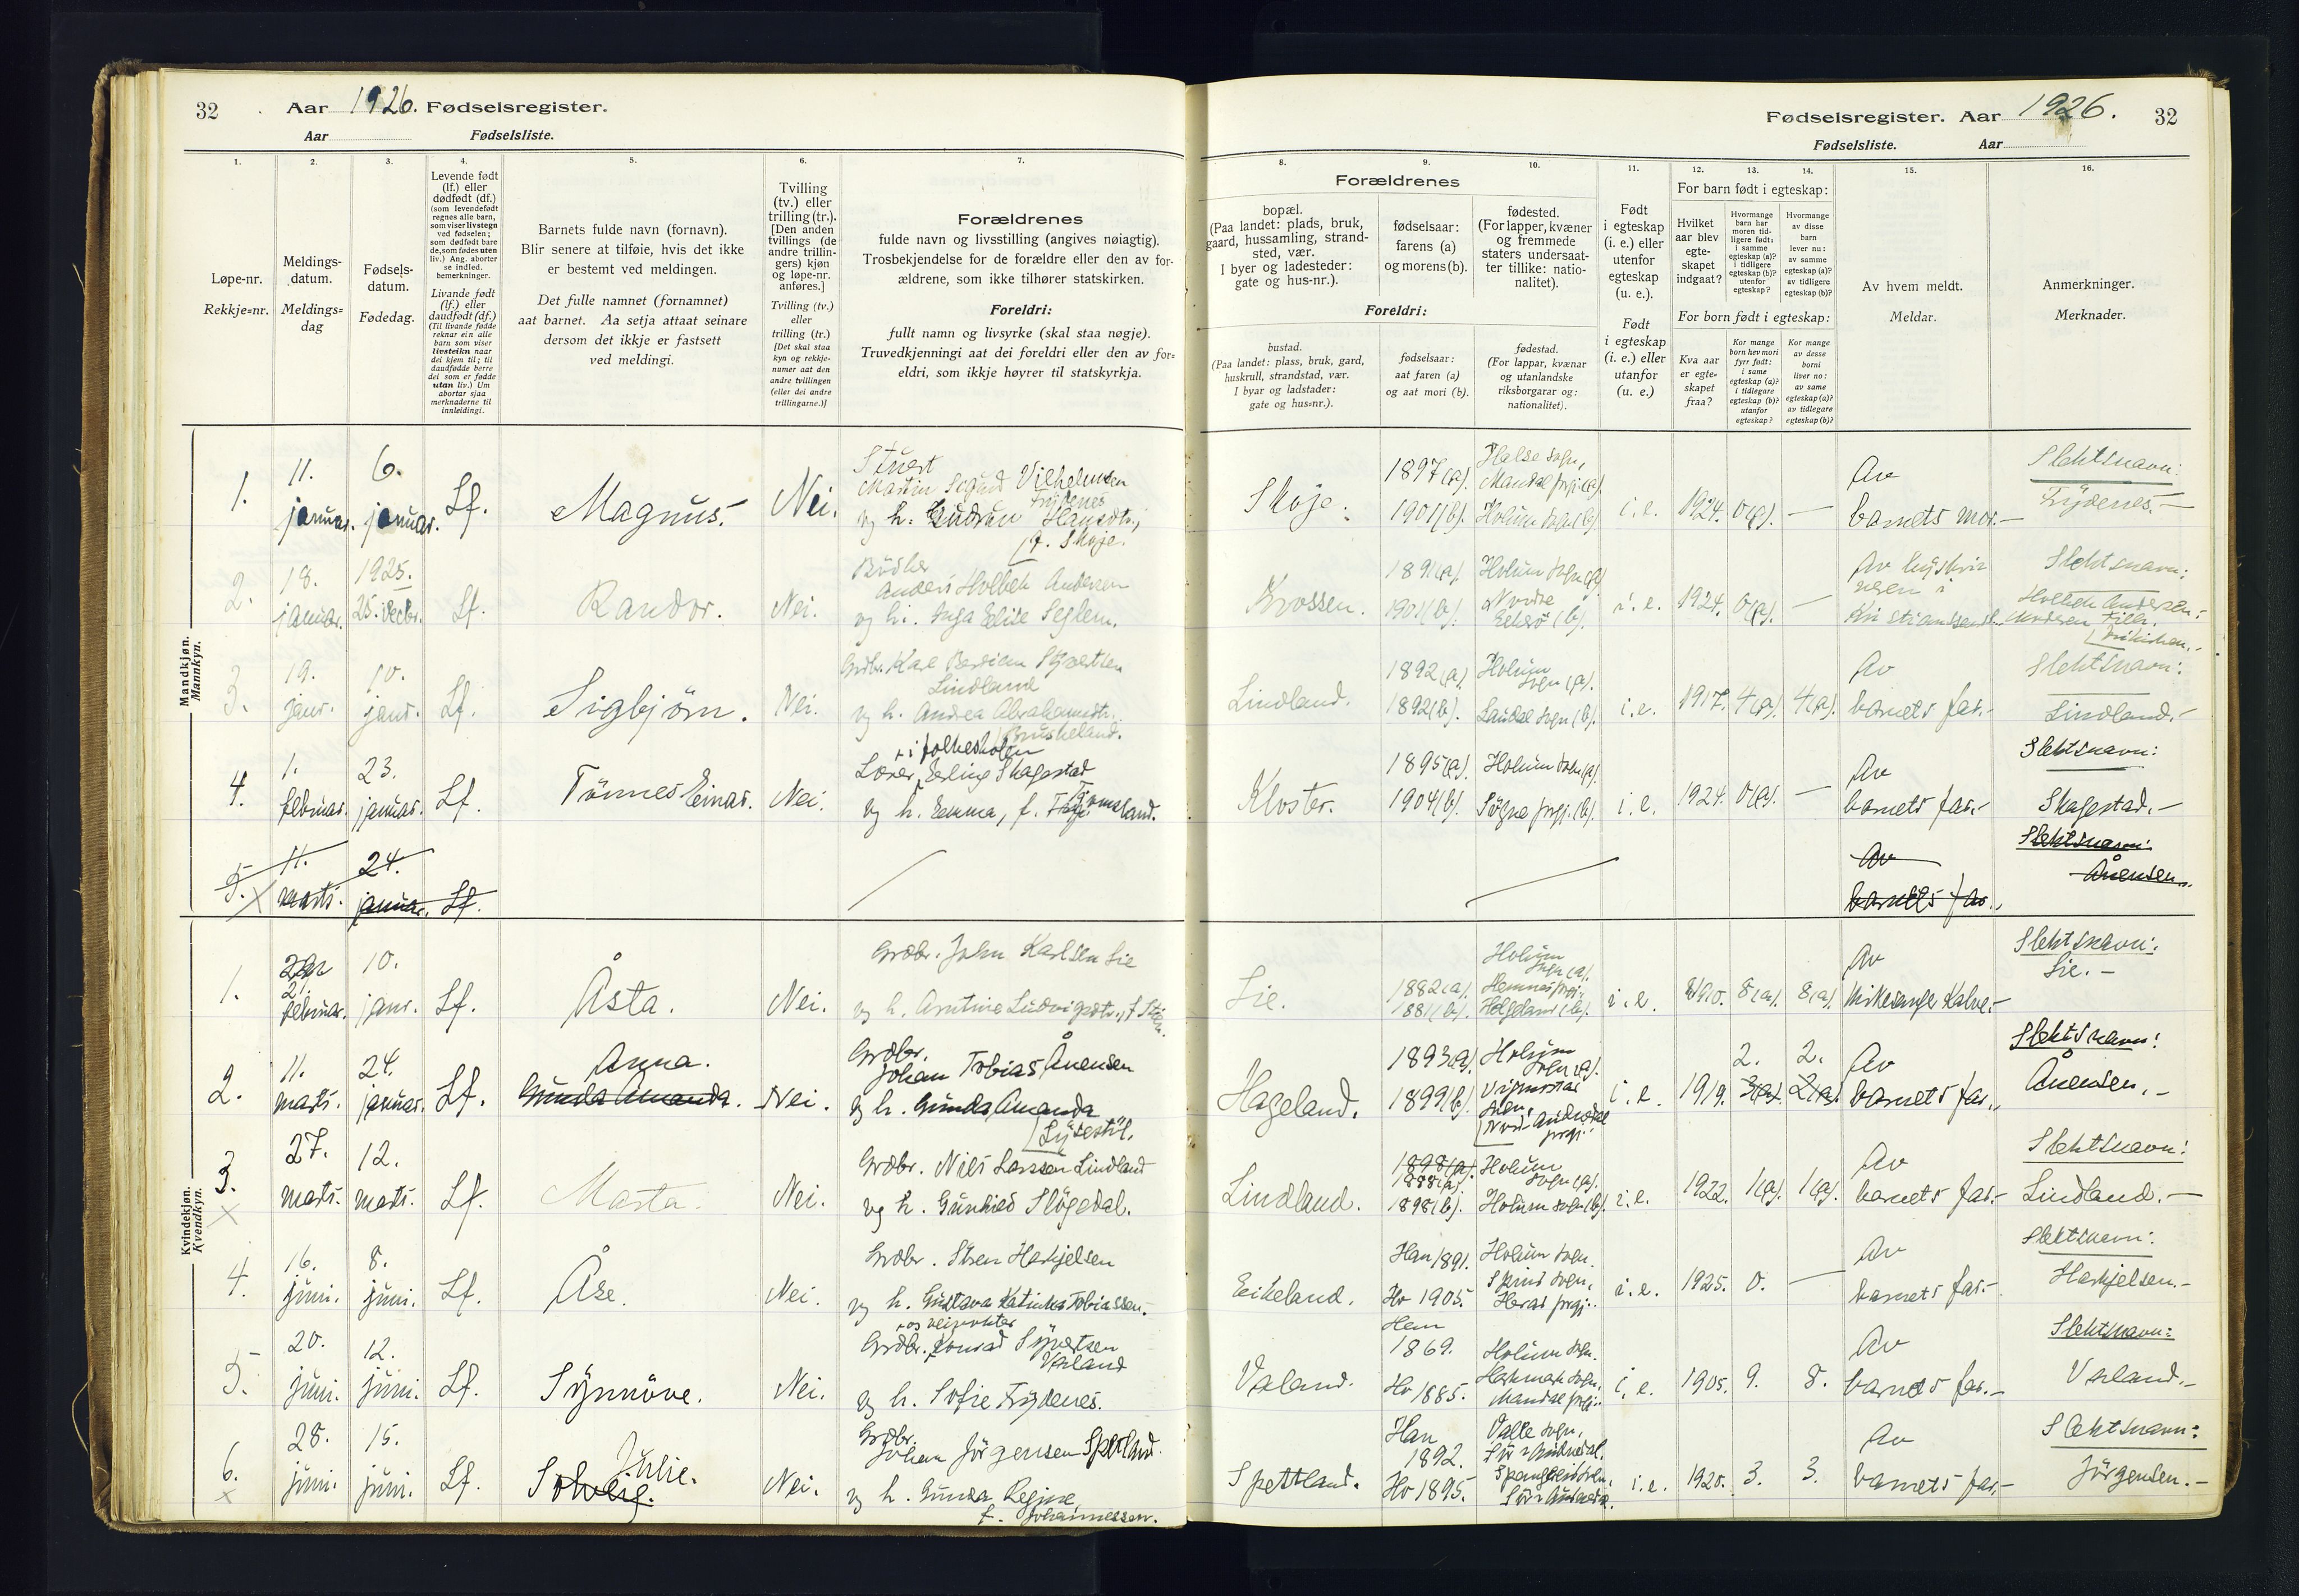 32 Aar 1926. Fødselsregister.
Aar Fødselsliste.
1. 2. 3. 4. 5. 6. 7.
Løpe-nr.
Rekkje=nr.
Meldings-
datum.
Meldings=
dag
Fødsels-
datum.
Fødedag.
Levende født
(lf.) eller
dødfødt (df.)
(som levendefødt
regnes alle barn,
som viser livstegn
ved fødselen;
som dødfødt bare
de, som fødes uten
liv.) Ang. aborter
se indled.
bemerkninger.
Livande født
(lf.) eller
daudfødt (df.)
(Til livande fødde
reknar ein alle
barn som viser
livsteikn naar
dei kjem til; til
daudfødde berre
dei som er fødde
utan liv.) Um
abortar sjaa
merknaderne til
innleidingi.
Barnets fulde navn (fornavn).
Blir senere at tilføie, hvis det ikke
er bestemt ved meldingen.
Det fulle namnet (fornamnet)
aat barnet. Aa setja attaat seinare
dersom det ikkje er fastsett
ved meldingi.
Tvilling
(tv.) eller
trilling (tr.).
[Den anden
tvillings (de
andre trillin-
gers) kjøn
og løpe-nr.
anføres.]
Tvilling (tv.)
eller
trilling (tr.)
[Det skal staa
kyn og rekkje-
numer aat den
andre tvillingen
(eller dei andre
trillingarne.)]
Forældrenes
fulde navn og livsstilling (angives nøiagtig).
Trosbekjendelse for de forældre eller den av for-
ældrene, som ikke tilhører statskirken.
Foreldri:
fullt namn og livsyrke (skal staa nøgje).
Truvedkjenningi aat dei foreldri eller den av for=
eldri, som ikkje høyrer til statskyrkja.
Mandkjøn.
Mannkyn.
1. 11. januar. 6. januar. Lf. Magnus. Nei.
Stuert
Martin Sigurd Vilhelmsen
Frydenes
og h. Gudrun Hansdtr.,
f. Skoje.
2. 18. januar. 1925. 25. decbr. Lf. Randor. Nei.
Anders Holbek Andersen
og h. Inga Elise Seglem.
3. 19. janr. 10. janr. Lf. Sigbjörn. Nei.
Grdbr. Karl Bersian Sjövertsen
Lindland
og h. Andrea Abrahamsdtr.
Brusheland.
4. 1. februar. 23. januar. Lf. Tönnes Einar. Nei.
i folkeskolen
Lærer Erling Skagestad
og h. Emma, f. Tromsland.
5. 11. marts. 24. januar. Lf.
Kvindekjøn.
Kvendkyn.
1. 21. februar. 10. janr. Lf. Åsta. Nei.
Grdbr. John Karlsen Lie
og h. Arntine Ludvigsdtr., f.
2. 11. marts. 24. januar. Lf. Anna. Gunda Amanda. Nei.
Grdbr.
Johan Tobias Ånensen
og h. Gunda Amanda
Lysestöl.
3. 27. marts. 12. marts. Lf. Marta. Nei.
Grdbr. Nils Larssen Lindland
og h. Gunhild Slögedal.
4. 16. juni. 8. juni. Lf. Åse. Nei.
Grdbr. Sören Haskjelsen
og h. Gustava Katinka Tobiassen.
5. 20. juni. 12. juni. Lf. Synnöve. Nei.
og veivokter
Grdbr. Konrad Syvertsen
Valand
og h. Sofie Frydenes.
6. 28. juni. 15. juni. Lf. Julie. Solveig. Nei.
Grdbr.
Johan Jörgensen Spetland.
og h. Gunda Regine,
f. Johannessen.
Fødselsregister. Aar 1926. 32
Fødselsliste. Aar
8. 9. 10. 11. 12. 13. 14. 15. 16.
Forældrenes
bopæl.
(Paa landet: plads, bruk,
gaard, hussamling, strand-
sted, vær.
I byer og ladesteder:
gate og hus-nr.).
fødselsaar:
farens (a)
og morens (b).
fødested.
(For lapper, kvæner
og fremmede
staters undersaat-
ter tillike: natio-
nalitet).
Foreldri:
bustad.
(Paa landet: plass, bruk, gard,
huskrull, strandstad, vær.
I byar og ladstader:
gate og hus=nr.).
fødselsaar:
aat faren (a)
og aat mori (b).
fødestad.
(For lappar, kvænar
og utanlandske
riksborgarar og:
nationalitet).
Født
i egteskap
(i. e.) eller
utenfor
egteskap
(u. e.).
Født
i egteskap
(i. e.) eller
utanfor
(u. e.)
For barn født i egteskap:
Hvilket
aar blev
egte-
skapet
indgaat?
Hvormange
barn har
moren tid-
ligere født:
i samme
egteskap (a)?
i tidligere
egteskap (b)?
utenfor
egteskap?
Hvormange
av disse
barn
lever nu:
av samme
egteskap (a)?
av tidligere
egteskap (b)?
For born født i egteskap:
Kva aar
er egte=
skapet
fraa?
Kor mange
born hev mori
fyrr født:
i same
egteskap (a)?
i tidlegare
egteskap (b)?
utanfor
egteskap?
Kor mange
av desse
borni
liver no:
av same
egteskap (a)?
av tidlegare
egteskap (b)?
Av hvem meldt.
Meldar.
Anmerkninger.
Merknader.
Skoje. 1897(a). 1901(b). Halse sogn, Mandal prgj.(a). Holum sogn (b). i. e. 1924. 0(a). — Av barnets mor.— Slektsnavn: Frydenes.—
Krossen. 1891(a). 1901(b). Holum sogn (a) Nordre i. e. 1924. 0(a). — Av Slektsnavn: Holbek Andersen.
Lindland. 1892(a). 1892(b). Holum sogn (a). Laudal sogn (b). i. e. 1917. 4(a). 4(a). Av barnets far.— Slektsnavn: Lindland.—
Kloster. 1895(a). 1904(b). Holum sogn (a). Sögne prgj. (b). i. e. 1924. 0(a). — Av barnets far.— Slektsnavn: Skagestad.—
Av barnets far. Slektsnavn: Ånensen.
Lie. 1882(a). 1881(b). Holum sogn (a). Hemnes prgj. Helgeland (b). i. e. 1910. 8(a). 8(a). Av kirkesanger Kalve.— Slektsnavn: Lie.—
Hageland. 1893(a). 1899(b). Holum sogn (a). Vigmostad sogn, Nord-Audnedal prgj. i. e. 1919. 2. 2. 2(a). Av barnets far. Slektsnavn: Ånensen.—
Lindland. 1898(a). 1888(a). 1898(b). Holum sogn (a). Holum sogn (b). i. e. 1922. 1(a). 1(a). Av barnets far.— Slektsnavn: Lindland.—
Eikeland. Han 1891. Ho 1905. Holum sogn. Spind sogn, Herad prgj. i. e. 1925. 0. — Av barnets far.— Slektsnavn: Haskjelsen.—
Valand. Han 1869. Ho 1885. Holum sogn. Harkmark sogn, Mandal prgj. i. e. 1905. 9. 8. Av barnets far.— Slektsnavn: Valand.—
Spettland. Han 1892. Ho 1895. Valle sogn, Sör-Audnedal. Spangereid sogn, Sör-Audnedal. i. e. 1920. 3. 3. Av barnets far.— Slektsnavn: Jörgensen.—